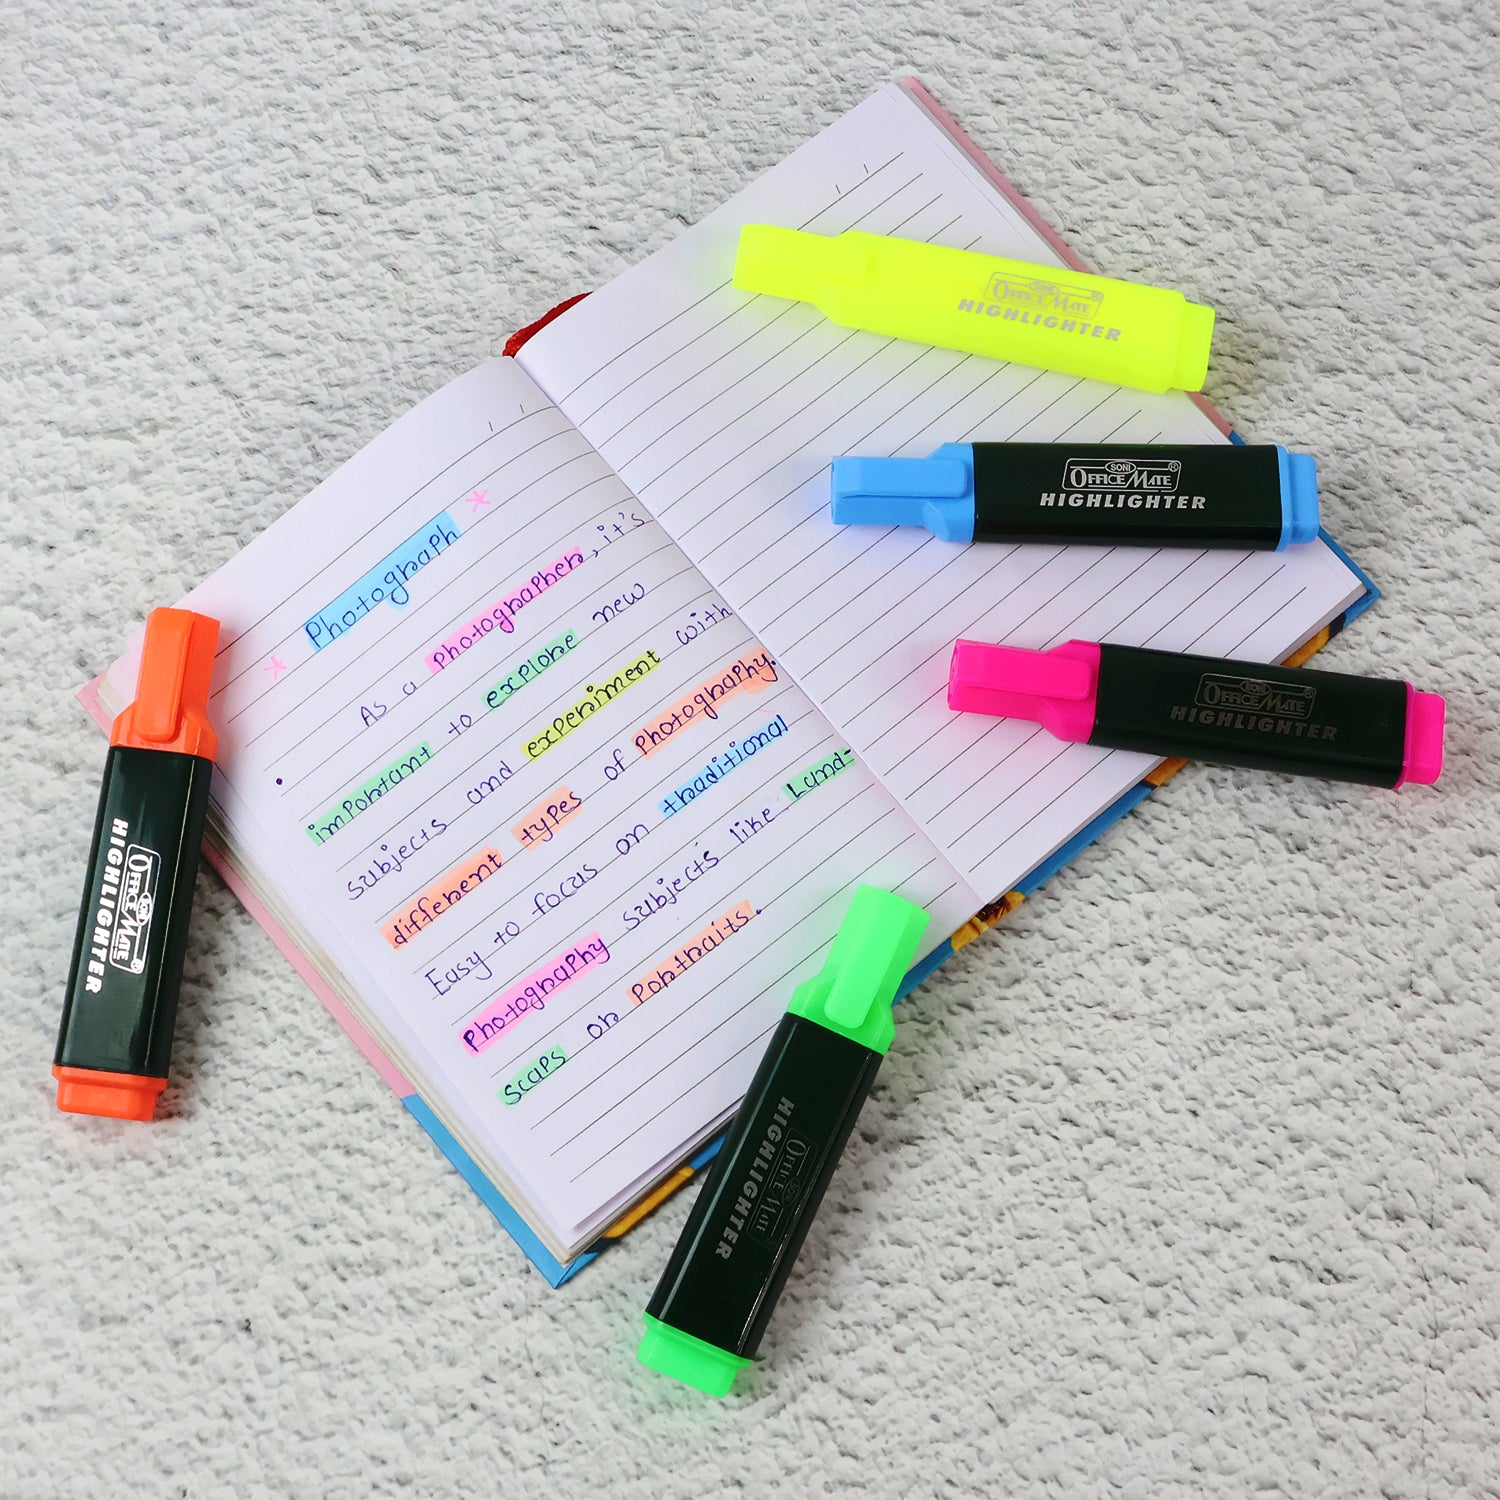 Photograph
As a Photographer, it's
important to explore new
subjects and experiment with
different types of Photography.
Easy to focus on traditional
Photography subjects like Land-
scaps or Portraits.
SONI
OFFICE MATE ®
HIGHLIGHTER
SONI
OFFICE MATE ®
HIGHLIGHTER
SONI
OFFICE MATE ®
HIGHLIGHTER
SONI
OFFICE MATE ®
HIGHLIGHTER
SONI
OFFICE MATE
HIGHLIGHTER